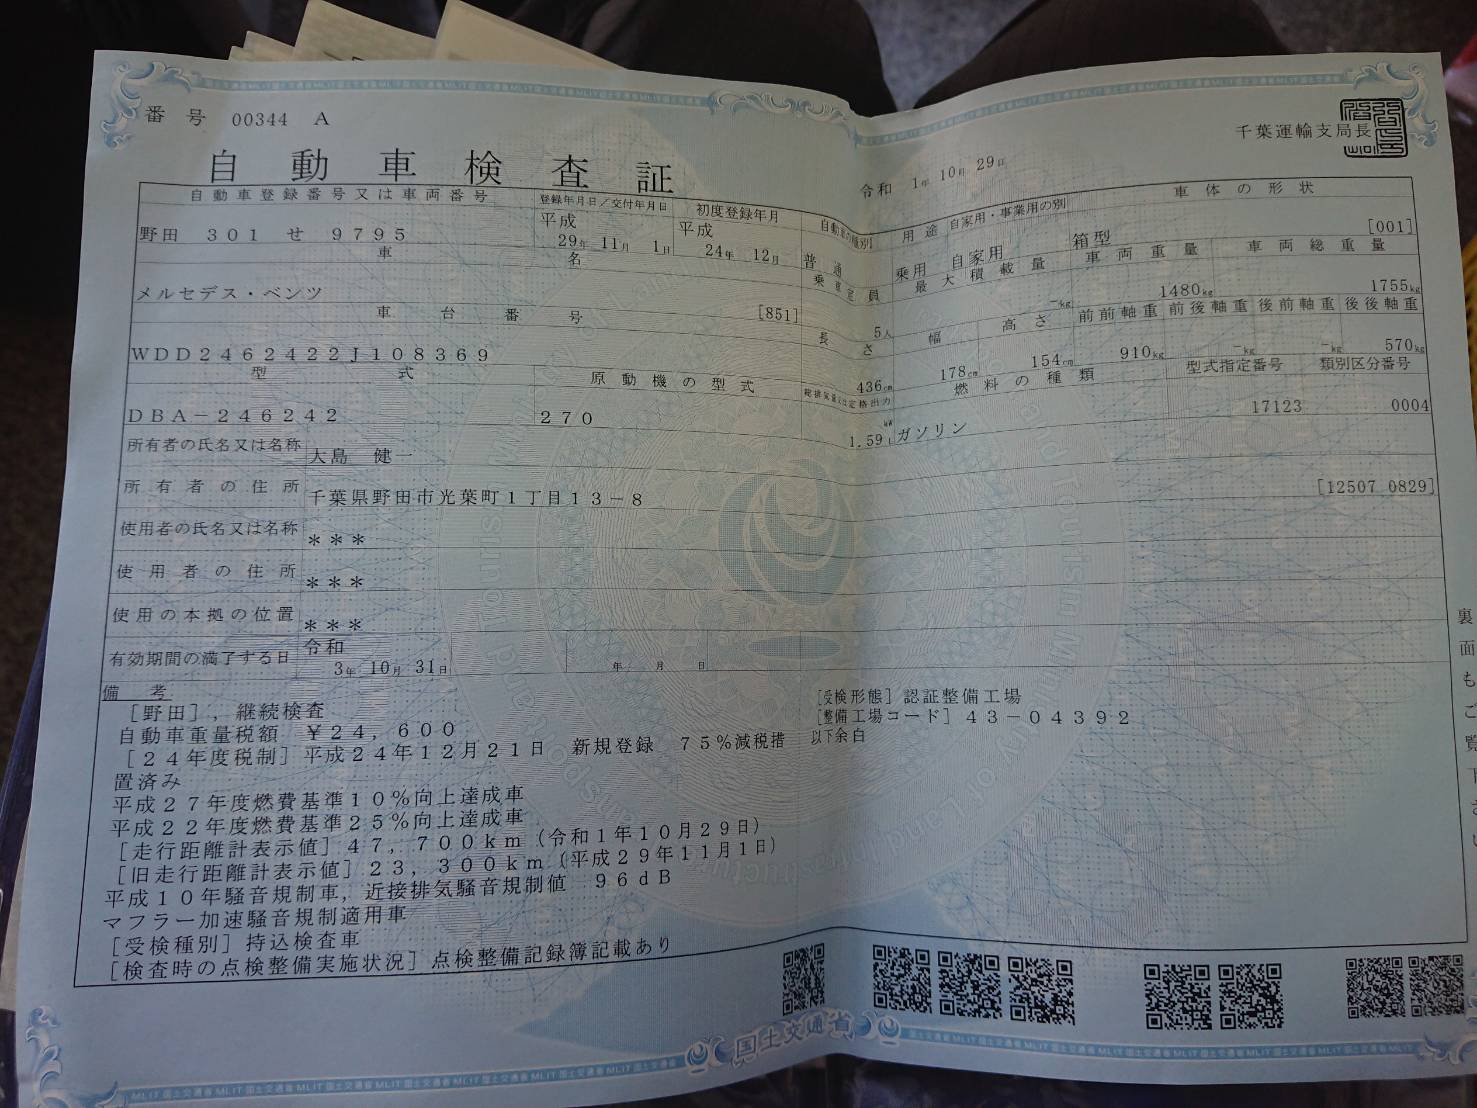 番号 00344 A
千葉運輸支局長
自動車検査証
令和 1年 10月 29日
自動車登録番号又は車両番号 登録年月日/交付年月日 初度登録年月 自動車の種別 用途 自家用・事業用の別 車体の形状
野田 301 せ 9795 平成 29年 11月 1日 平成 24年 12月 普通 乗用 自家用 箱型 [001]
車名 乗車定員 最大積載量 車両重量 車両総重量
メルセデス・ベンツ [851] 5人 -kg 1480kg 1755kg
車台番号 長さ 幅 高さ 前前軸重 前後軸重 後前軸重 後後軸重
WDD2462422J108369 436cm 178cm 154cm 910kg -kg -kg 570kg
型式 原動機の型式 総排気量又は定格出力 燃料の種類 型式指定番号 類別区分番号
DBA-246242 270 1.59 kW L ガソリン 17123 0004
所有者の氏名又は名称 大島 健一
所有者の住所 千葉県野田市光葉町1丁目13-8 [12507 0829]
使用者の氏名又は名称 ***
使用者の住所 ***
使用の本拠の位置 ***
有効期間の満了する日 令和 3年 10月 31日 年 月 日
備考
[野田],継続検査
自動車重量税額 ¥24,600
[24年度税制]平成24年12月21日 新規登録 75%減税措
置済み
平成27年度燃費基準10%向上達成車
平成22年度燃費基準25%向上達成車
[走行距離計表示値]47,700km(令和1年10月29日)
[旧走行距離計表示値]23,300km(平成29年11月1日)
平成10年騒音規制車,近接排気騒音規制値 96dB
マフラー加速騒音規制適用車
[受検種別]持込検査車
[検査時の点検整備実施状況]点検整備記録簿記載あり
[受検形態]認証整備工場
[整備工場コード]43-04392
以下余白
裏面もご覧下さい
国土交通省